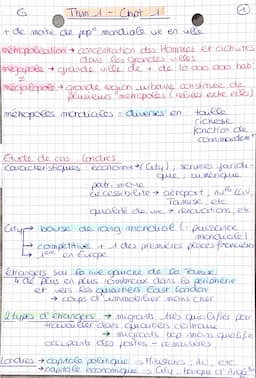 G Thm 1 - Chpt 1 1
+ de moitié de pop° mondiale vie en ville
métropolisation → concentration des Hommes et activités
dans les grandes villes
mégapole → grande ville de + de 10 000 000 hab
≠
mégalopole → grande région urbaine constituée de
plusieurs métropoles (reliées entre elles)
métropoles mondiales = diverses en taille
richesse
fonction de
commandemt
Etude de cas : Londres
caractéristiques économie → (City), services juridi-
que, numérique
patrimoine
accessibilité → aéroport, LGV,
Tamise, etc
qualité de vie → rénovation, etc
City → bourse de rang mondial (= puissance
mondiale)
→ compétitive + 1 des premières places financières
→ 1ère en Europe
étrangers sur la rive gauche de la Tamise
→ de plus en plus nombreux dans la périphérie
et vers les quartiers East London
→ coups d'immobilier moins cher
2 types d'étrangers → migrants très qualifiés par
travailler dans quartiers centraux
→ migrants bcp moins qualifiés
occupants des postes - rémunérés
Londres → capitale politique → Ministères, etc
→ capitale économique → City, banque d'Angl